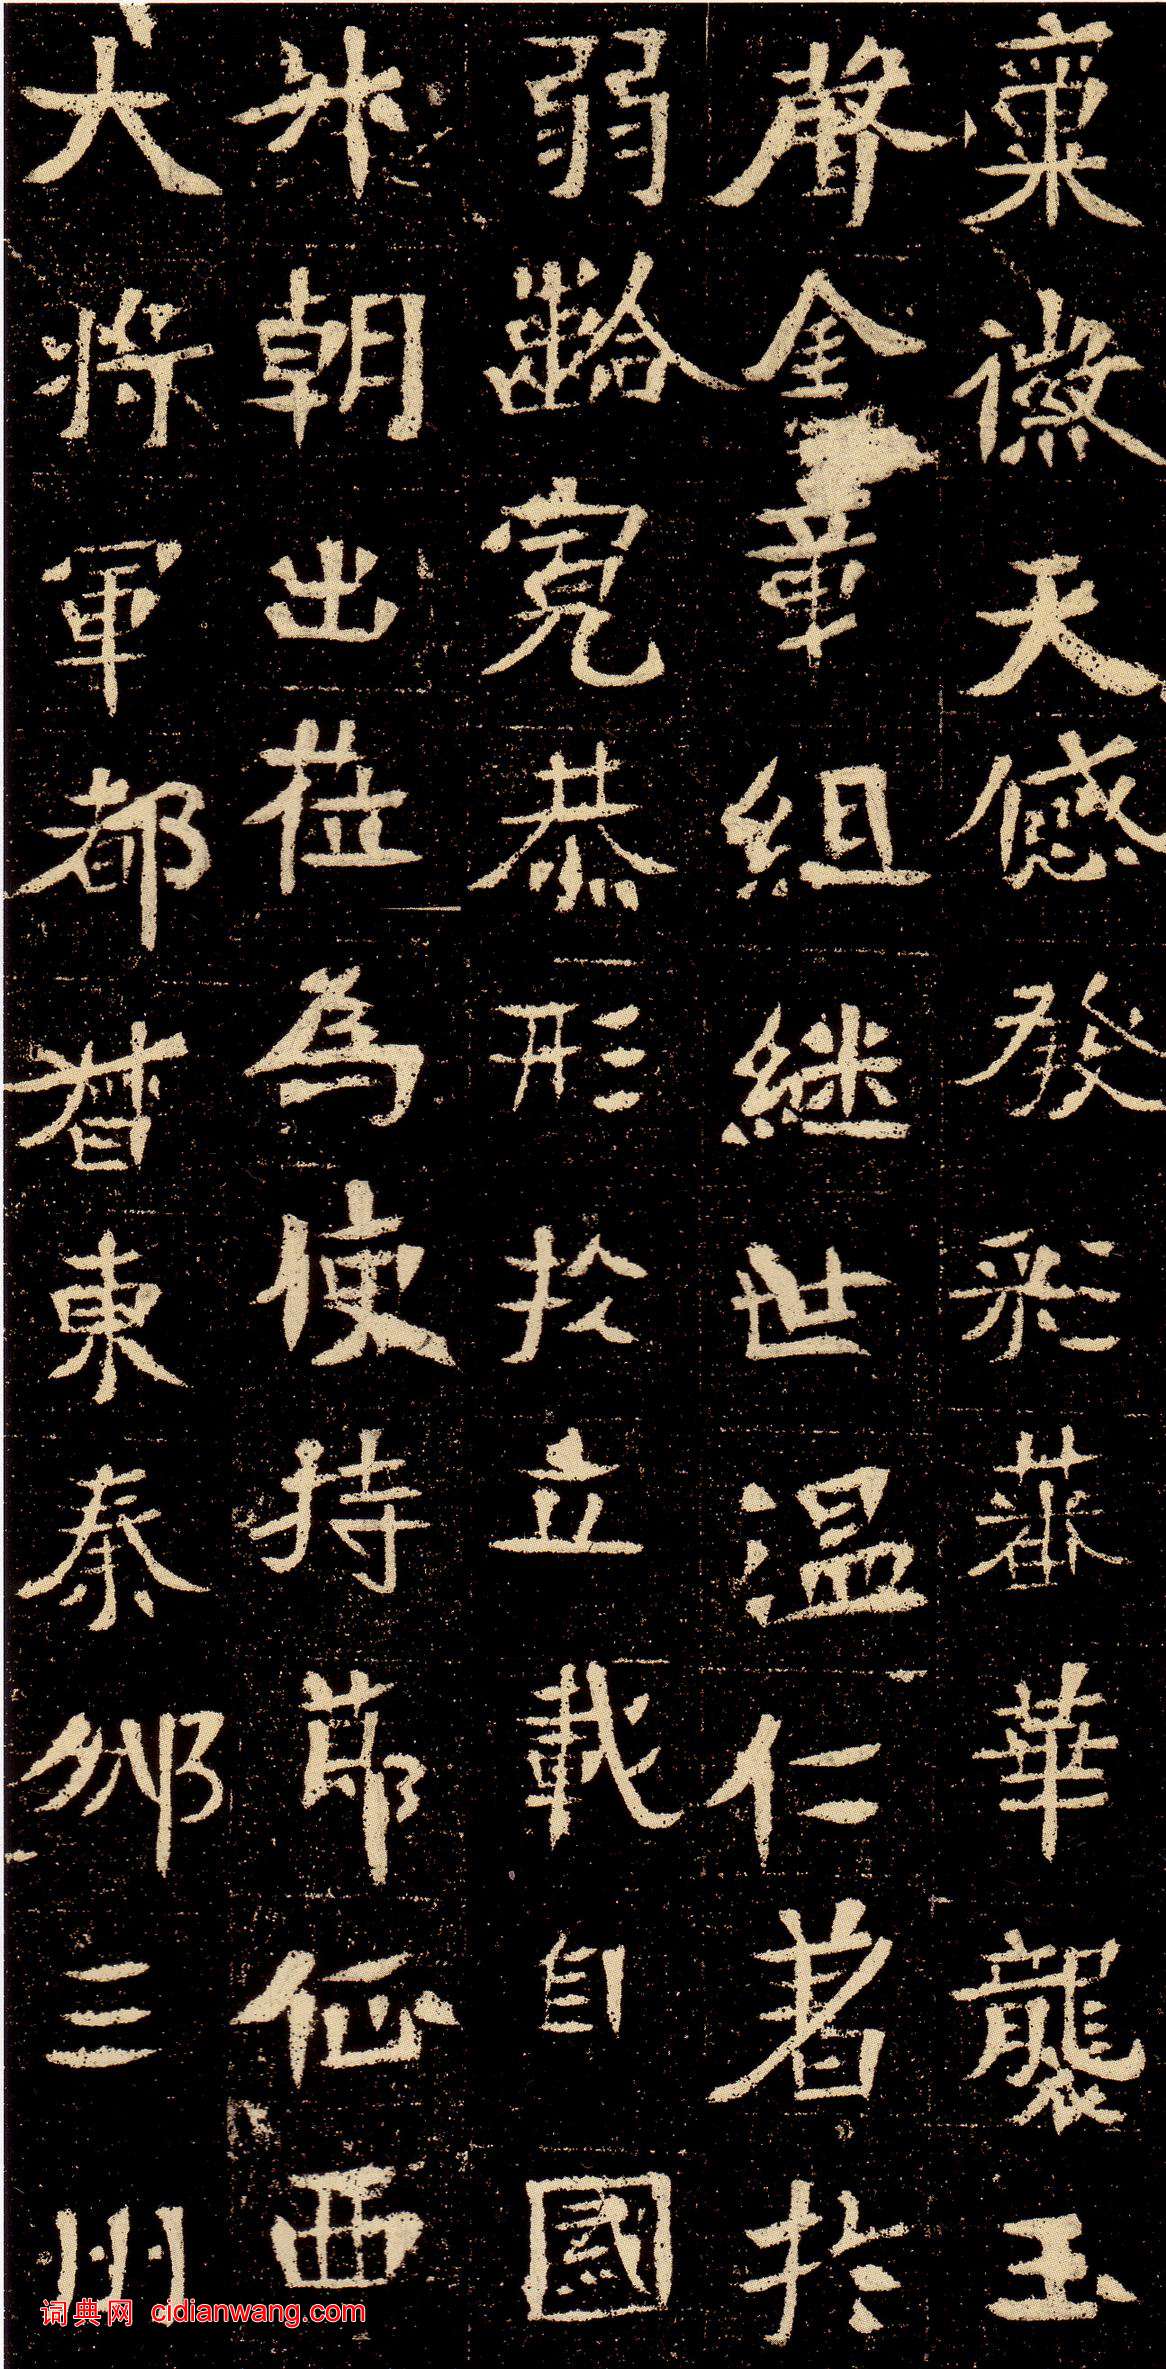 稟徽天感發彩蕃華襲玉
聲金章組繼世溫仁著於
弱齡寬恭形於立載自國
升朝出莅為使持節征西
大將軍都督東秦邠三州
词典网 cidianwang.com